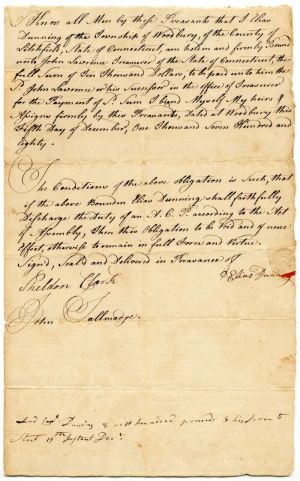 Know all Men by these Presants that I Elias
Dunning of the Township of Woodbury, of the County of
Litchfield, State of Connecticut, am holden and firmly Bound
unto John Lawrence Treasurer of the State of Connecticut, the
full Sum of Ten Thousand Dollars, to be paid unto him the
P. John Lawrence or his Successor in the office of Treasurer
for the Payment of P. Sum I bind Myself My heirs &
Assigns firmly by these Presants, Dated at Woodbury this
Fifth Day of December, One Thousand Seven Hundred and
eighty.
The Conditions of the above obligation is Such, that
if the above Bounden Elias Dunning shall faithfully
Discharge the Duty of an A. C. P. according to the Act
of Assembly, Then this Obligation to be Void and of none
Effect, otherwise to remain in full Force and Virtue.
Signd, Seald and Delivered in Presance off
Elias Dunning
Sheldon Clark
John Tallmadge
hundred pounds &
Start 19th Instant Decr.